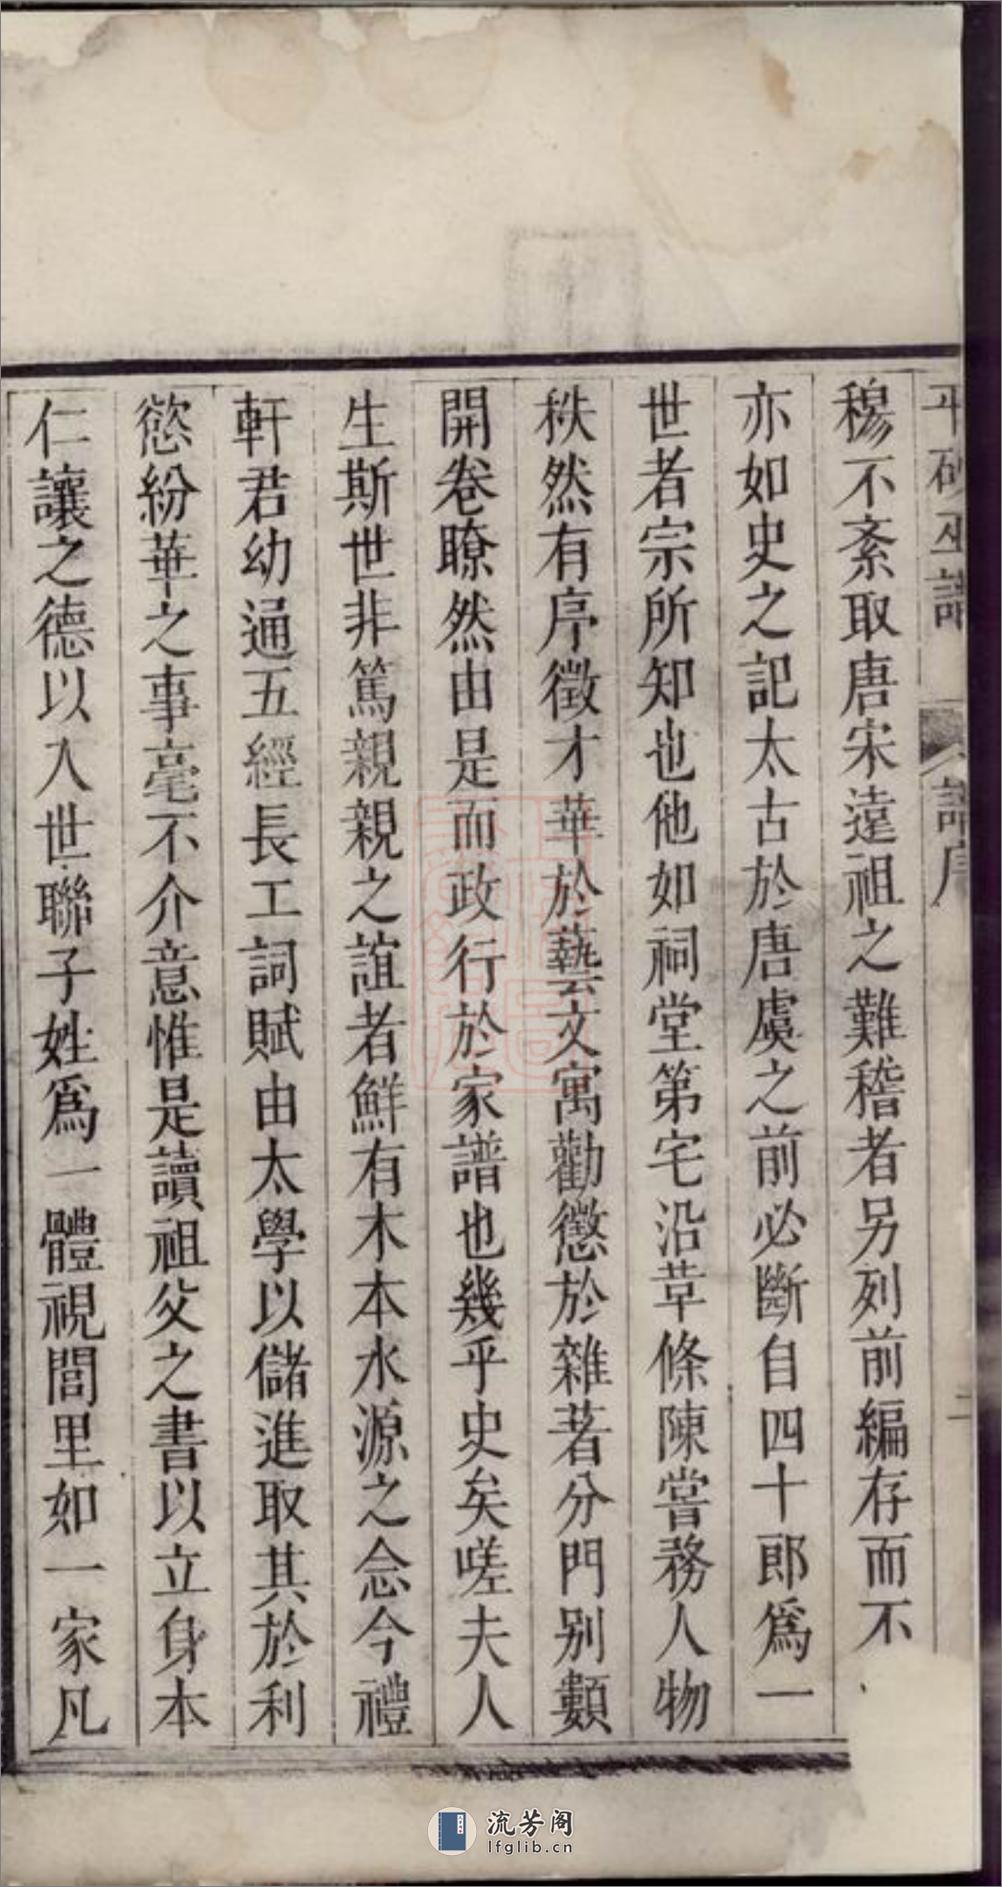 穆不紊取唐宋遠祖之難稽者另列前編存而不
亦如史之記太古於唐虞之前必斷自四十郎爲一
世者宗所知也他如祠堂第宅沿革條陳嘗務人物
秩然有序徵才華於藝文寓勸懲於雜著分門別類
開卷瞭然由是而政行於家譜也幾乎史矣嗟夫人
生斯世非篤親親之誼者鮮有木本水源之念今禮
軒君幼通五經長工詞賦由太學以儲進取其於利
慾紛華之事毫不介意惟是讀祖父之書以立身本
仁讓之德以入世聯子姓爲一體視閭里如一家凡
流芳阁
lfglib.cn